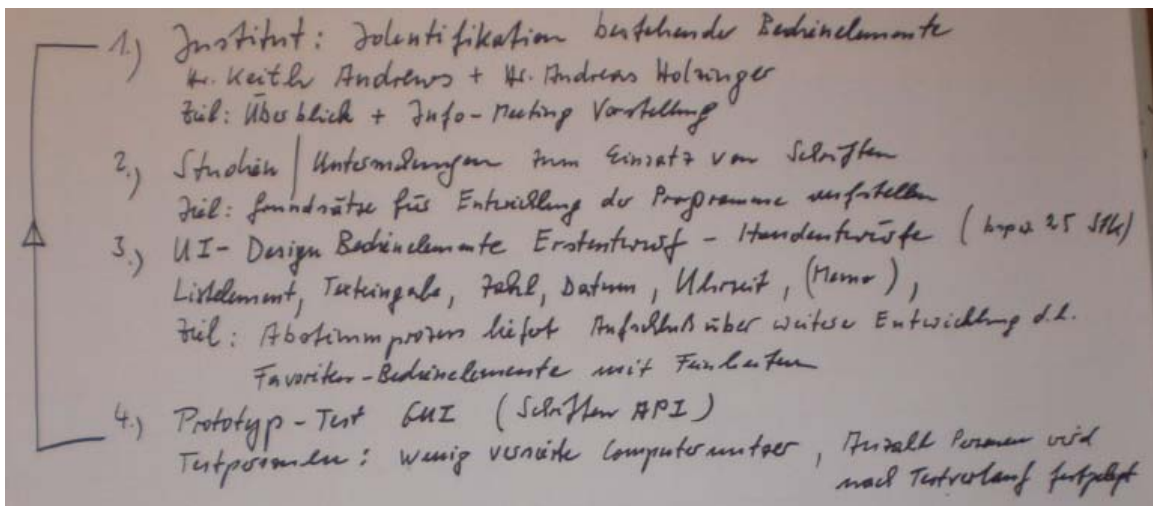 1.) Institut: Identifikation bestehender Bedienelemente
Hr. Keith Andrews + Hr. Andreas Holzinger
Ziel: Überblick + Info-Meeting Vorstellung
2.) Studien / Untersuchungen zum Einsatz von Schriften
Ziel: Grundsätze für Entwicklung der Programme aufstellen
3.) UI-Design Bedienelemente Erstentwurf - Handentwürfe ( 25 Stk)
Listelement, Texteingabe, Zahl, Datum, Uhrzeit, (Memo),
Ziel: Abstimmprozess liefert Aufschluß über weitere Entwicklung d.h.
Favoriten-Bedienelemente mit Feinheiten
4.) Prototyp-Test GUI (Schriften API)
Testpersonen: wenig versierte Computernutzer, Anzahl Personen wird
nach Testverlauf festgelegt